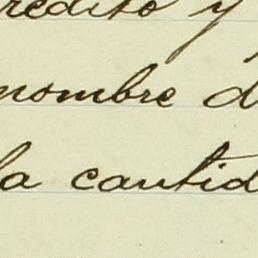 redito y
nombre d
la cantid